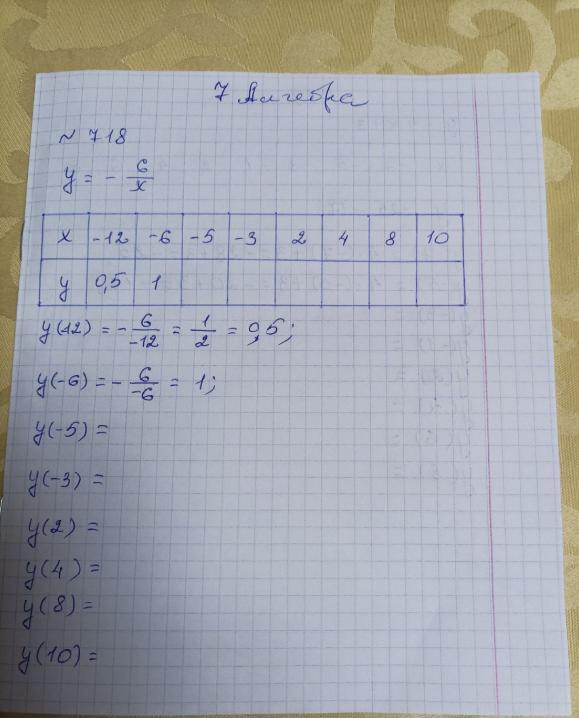 7 Алгебра
~ 718
y = - 6/x
x -12 -6 -5 -3 2 4 8 10
y 0,5 1
y(-12) = - 6/-12 = 1/2 = 0,5;
y(-6) = - 6/-6 = 1;
y(-5) =
y(-3) =
y(2) =
y(4) =
y(8) =
y(10) =